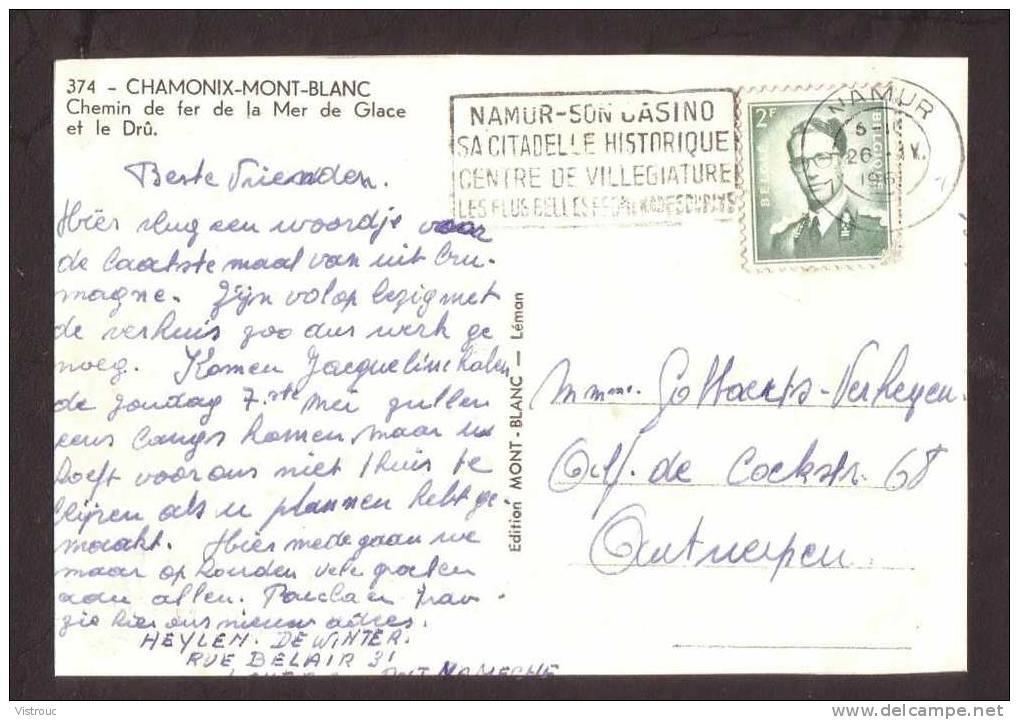 374 - CHAMONIX-MONT-BLANC
Chemin de fer de la Mer de Glace
et le Drû.
NAMUR-SON CASINO
SA CITADELLE HISTORIQUE
CENTRE DE VILLEGIATURE
LES PLUS BELLES
2F
BELGIE
BELGIQUE
NAMUR
Beste Vrienden.
Hier vlug een woordje voor
de laatste maal van uit Cru-
magne. Zijn volop bezig met
de verhuis zoo dus werk ge
noeg. Komen Jacqueline halen
de zondag 7.ste mei zullen
eens langs komen maar u
hoeft voor ons niet thuis te
blijven als u plannen hebt ge
maakt. Hier mede gaan we
maar op houden vele groeten
aan allen. Paula en Frav
zie hier ons nieuw adres.
HEYLEN. DE WINTER.
RUE BELAIR 31
NAMECHE
Edition MONT-BLANC — Léman
Mmme. Gottaerts-Verheyen.
Alf. de Cockstr. 68
Antwerpen.
Vistrouc
www.delcampe.net